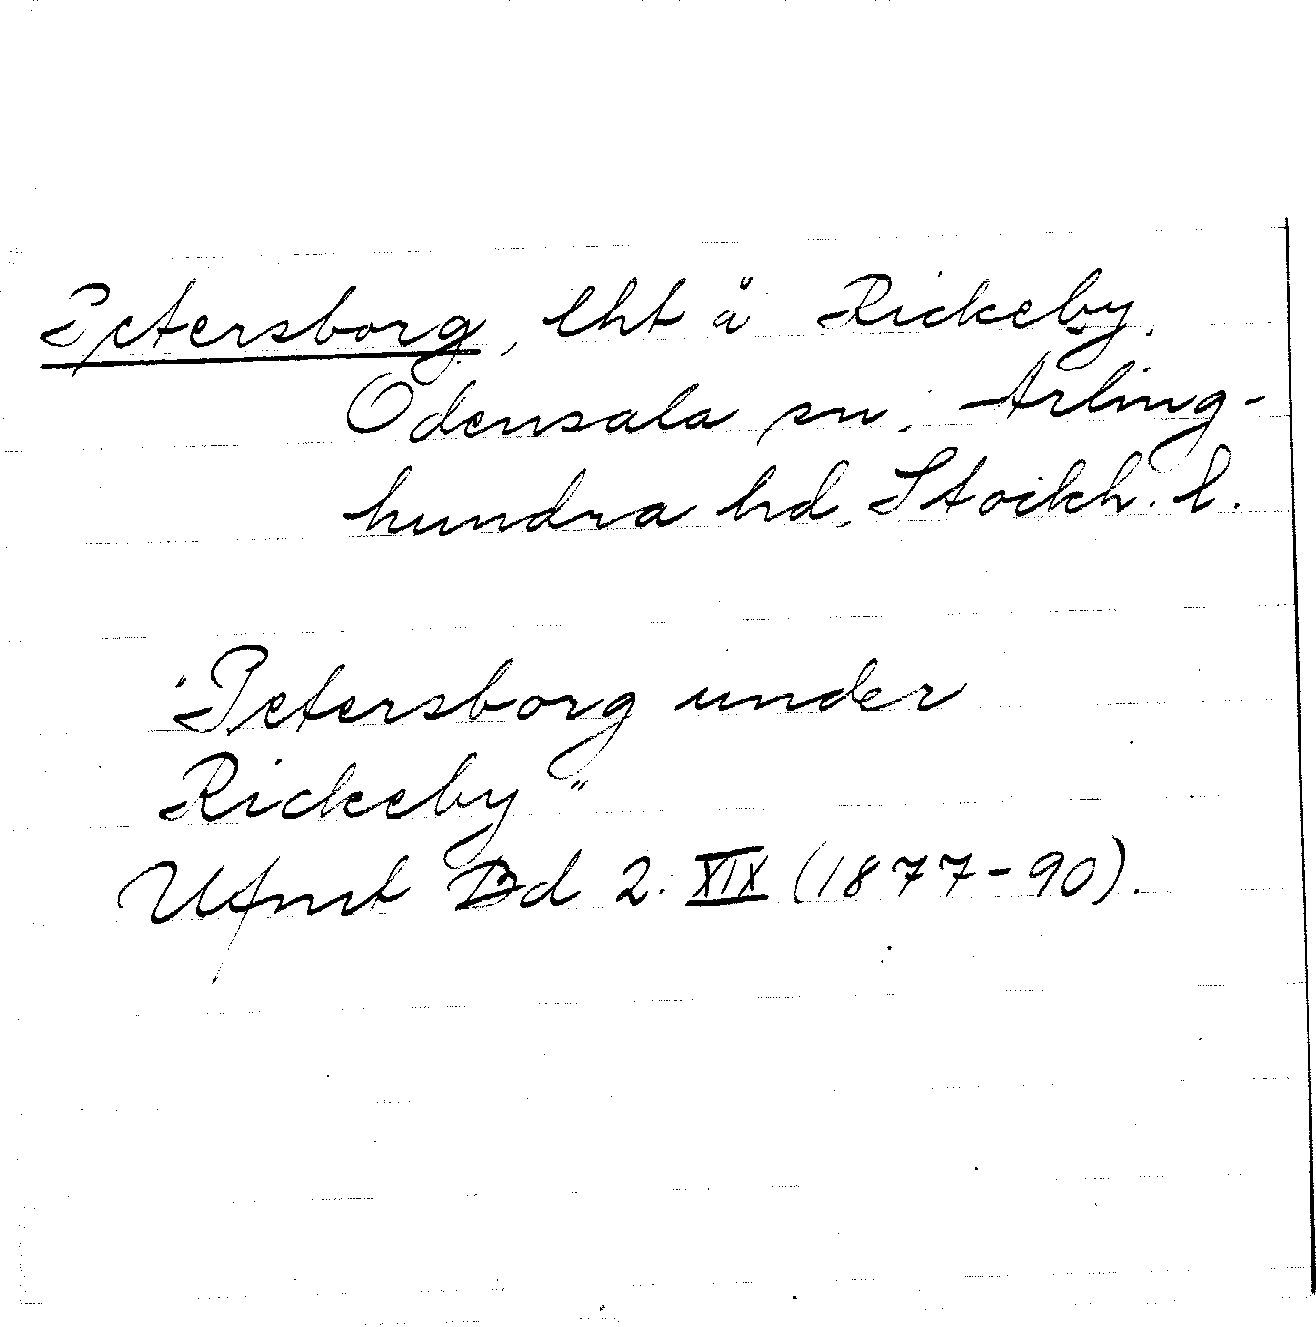 Petersborg, lht å Rickeby,
Odensala sn, Arling-
hundra hd, Stockh. l.
"Petersborg under
Rickeby"
Ufmt Bd 2. XIX (1877-90).